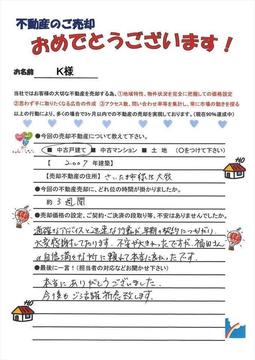 不動産のご売却
おめでとうございます！
お名前 K様
当社ではお客様の大切な不動産を売却する為、①地域特性、物件状況を完全に把握しての価格設定
②思わず手に取りたくなる広告の作成 ③アクセス数、問い合わせ率等を集計し、常に市場の動きを探る
以上の行動により、多くの場合で3ヶ月以内での不動産の売却を実現しております。(現在90%達成中)
●今回の売却不動産について教えて下さい。
中古戸建て ■ 中古マンション ■ 土 地 (○をつけて下さい)
【 2007 年建築】
【売却不動産の住所】さいたま市
●今回の不動産売却に、どれ位の時間が掛かりましたか。
約3週間
●売却価格の設定、ご契約・ご決済の段取り等、不安はありませんでしたか。
適確なアドバイスと迅速な行動が早期の契約につながり、
大変感謝しております。不安や
に頼んで本当に良かったです。
●最後に一言！(担当者の対応などお聞かせ下さい)
本当にありがとうございました。
今後もご活躍祈念致します。
HO
HO